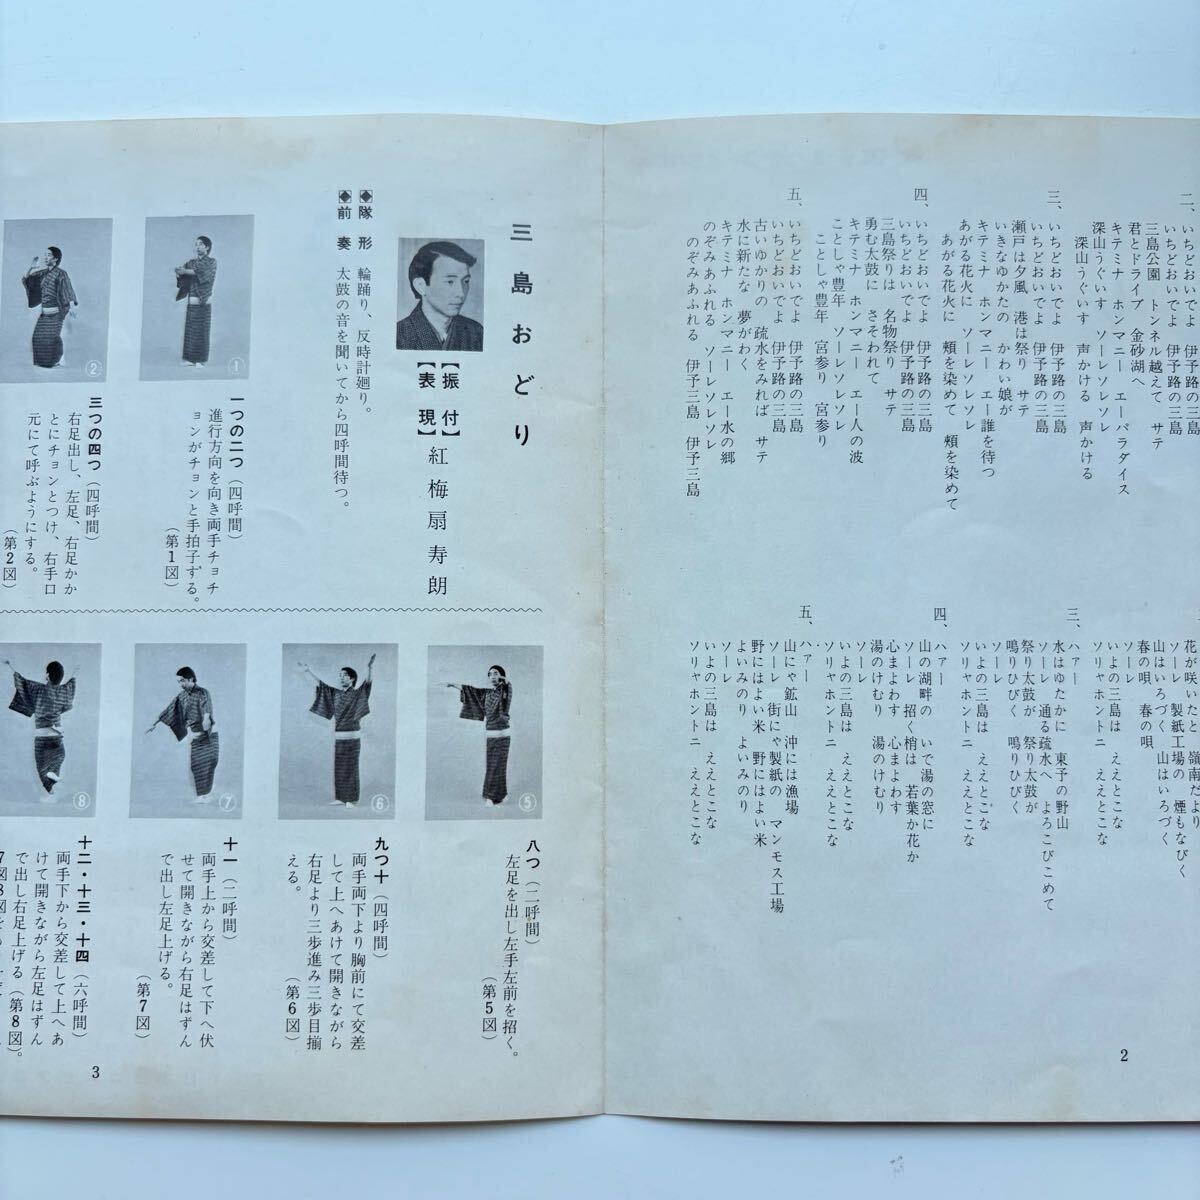 二、
いちどおいでよ 伊予路の三島
いちどおいでよ 伊予路の三島
三島公園 トンネル越えて サテ
君とドライブ 金砂湖へ
キテミナ ホンマニー エーパラダイス
深山うぐいす ソーレソレソレ
深山うぐいす 声かける 声かける
三、
いちどおいでよ 伊予路の三島
いちどおいでよ 伊予路の三島
瀬戸は夕風 港は祭り サテ
いきなゆかたの かわい娘が
キテミナ ホンマニー エー誰を待つ
あがる花火に ソーレソレソレ
あがる花火に 頬を染めて 頬を染めて
四、
いちどおいでよ 伊予路の三島
いちどおいでよ 伊予路の三島
三島祭りは 名物祭り サテ
勇む太鼓に さそわれて
キテミナ ホンマニー エー人の波
ことしゃ豊年 ソーレソレソレ
ことしゃ豊年 宮参り 宮参り
五、
いちどおいでよ 伊予路の三島
いちどおいでよ 伊予路の三島
古いゆかりの 疏水をみれば サテ
水に新たな 夢がわく
キテミナ ホンマニー エー水の郷
のぞみあふれる ソーレソレソレ
のぞみあふれる 伊予三島 伊予三島
花が咲いたと 嶺南だより
ソーレ 製紙工場の 煙もなびく
山はいろづく 山はいろづく
春の唄 春の唄
ソーレ
いよの三島は ええとこな
ソリャホントニ ええとこな
三、
ハァー
水はゆたかに 東予の野山
ソーレ 通る疏水へ よろこびこめて
祭り太鼓が 祭り太鼓が
鳴りひびく 鳴りひびく
ソーレ
いよの三島は ええとこな
ソリャホントニ ええとこな
四、
ハァー
山の湖畔の いで湯の窓に
ソーレ 招く梢は 若葉か花か
心まよわす 心まよわす
湯のけむり 湯のけむり
ソーレ
いよの三島は ええとこな
ソリャホントニ ええとこな
五、
ハァー
山にゃ鉱山 沖には漁場
ソーレ 街にゃ製紙の マンモス工場
野にはよい米 野にはよい米
よいみのり よいみのり
ソーレ
いよの三島は ええとこな
ソリャホントニ ええとこな
2
三島おどり
【振付】
【表現】
紅梅扇寿朗
◆隊形 輪踊り、反時計廻り。
◆前奏 太鼓の音を聞いてから四呼間待つ。
①
一つの二つ（四呼間）
進行方向を向き両手チョチ
ョンがチョンと手拍子する。
（第1図）
②
三つの四つ（四呼間）
右足出し、左足、右足かか
とにチョンとつけ、右手口
元にて呼ぶようにする。
（第2図）
⑤
八つ（二呼間）
左足を出し左手左前を招く。
（第5図）
⑥
九つ十（四呼間）
両手両下より胸前にて交差
して上へあけて開きながら
右足より三歩進み三歩目揃
える。
（第6図）
⑦
十一（二呼間）
両手上から交差して下へ伏
せて開きながら右足はずん
で出し左足上げる。
（第7図）
⑧
十二・十三・十四（六呼間）
両手下から交差して上へあ
けて開きながら左足はずん
で出し右足上げる（第8図）。
3